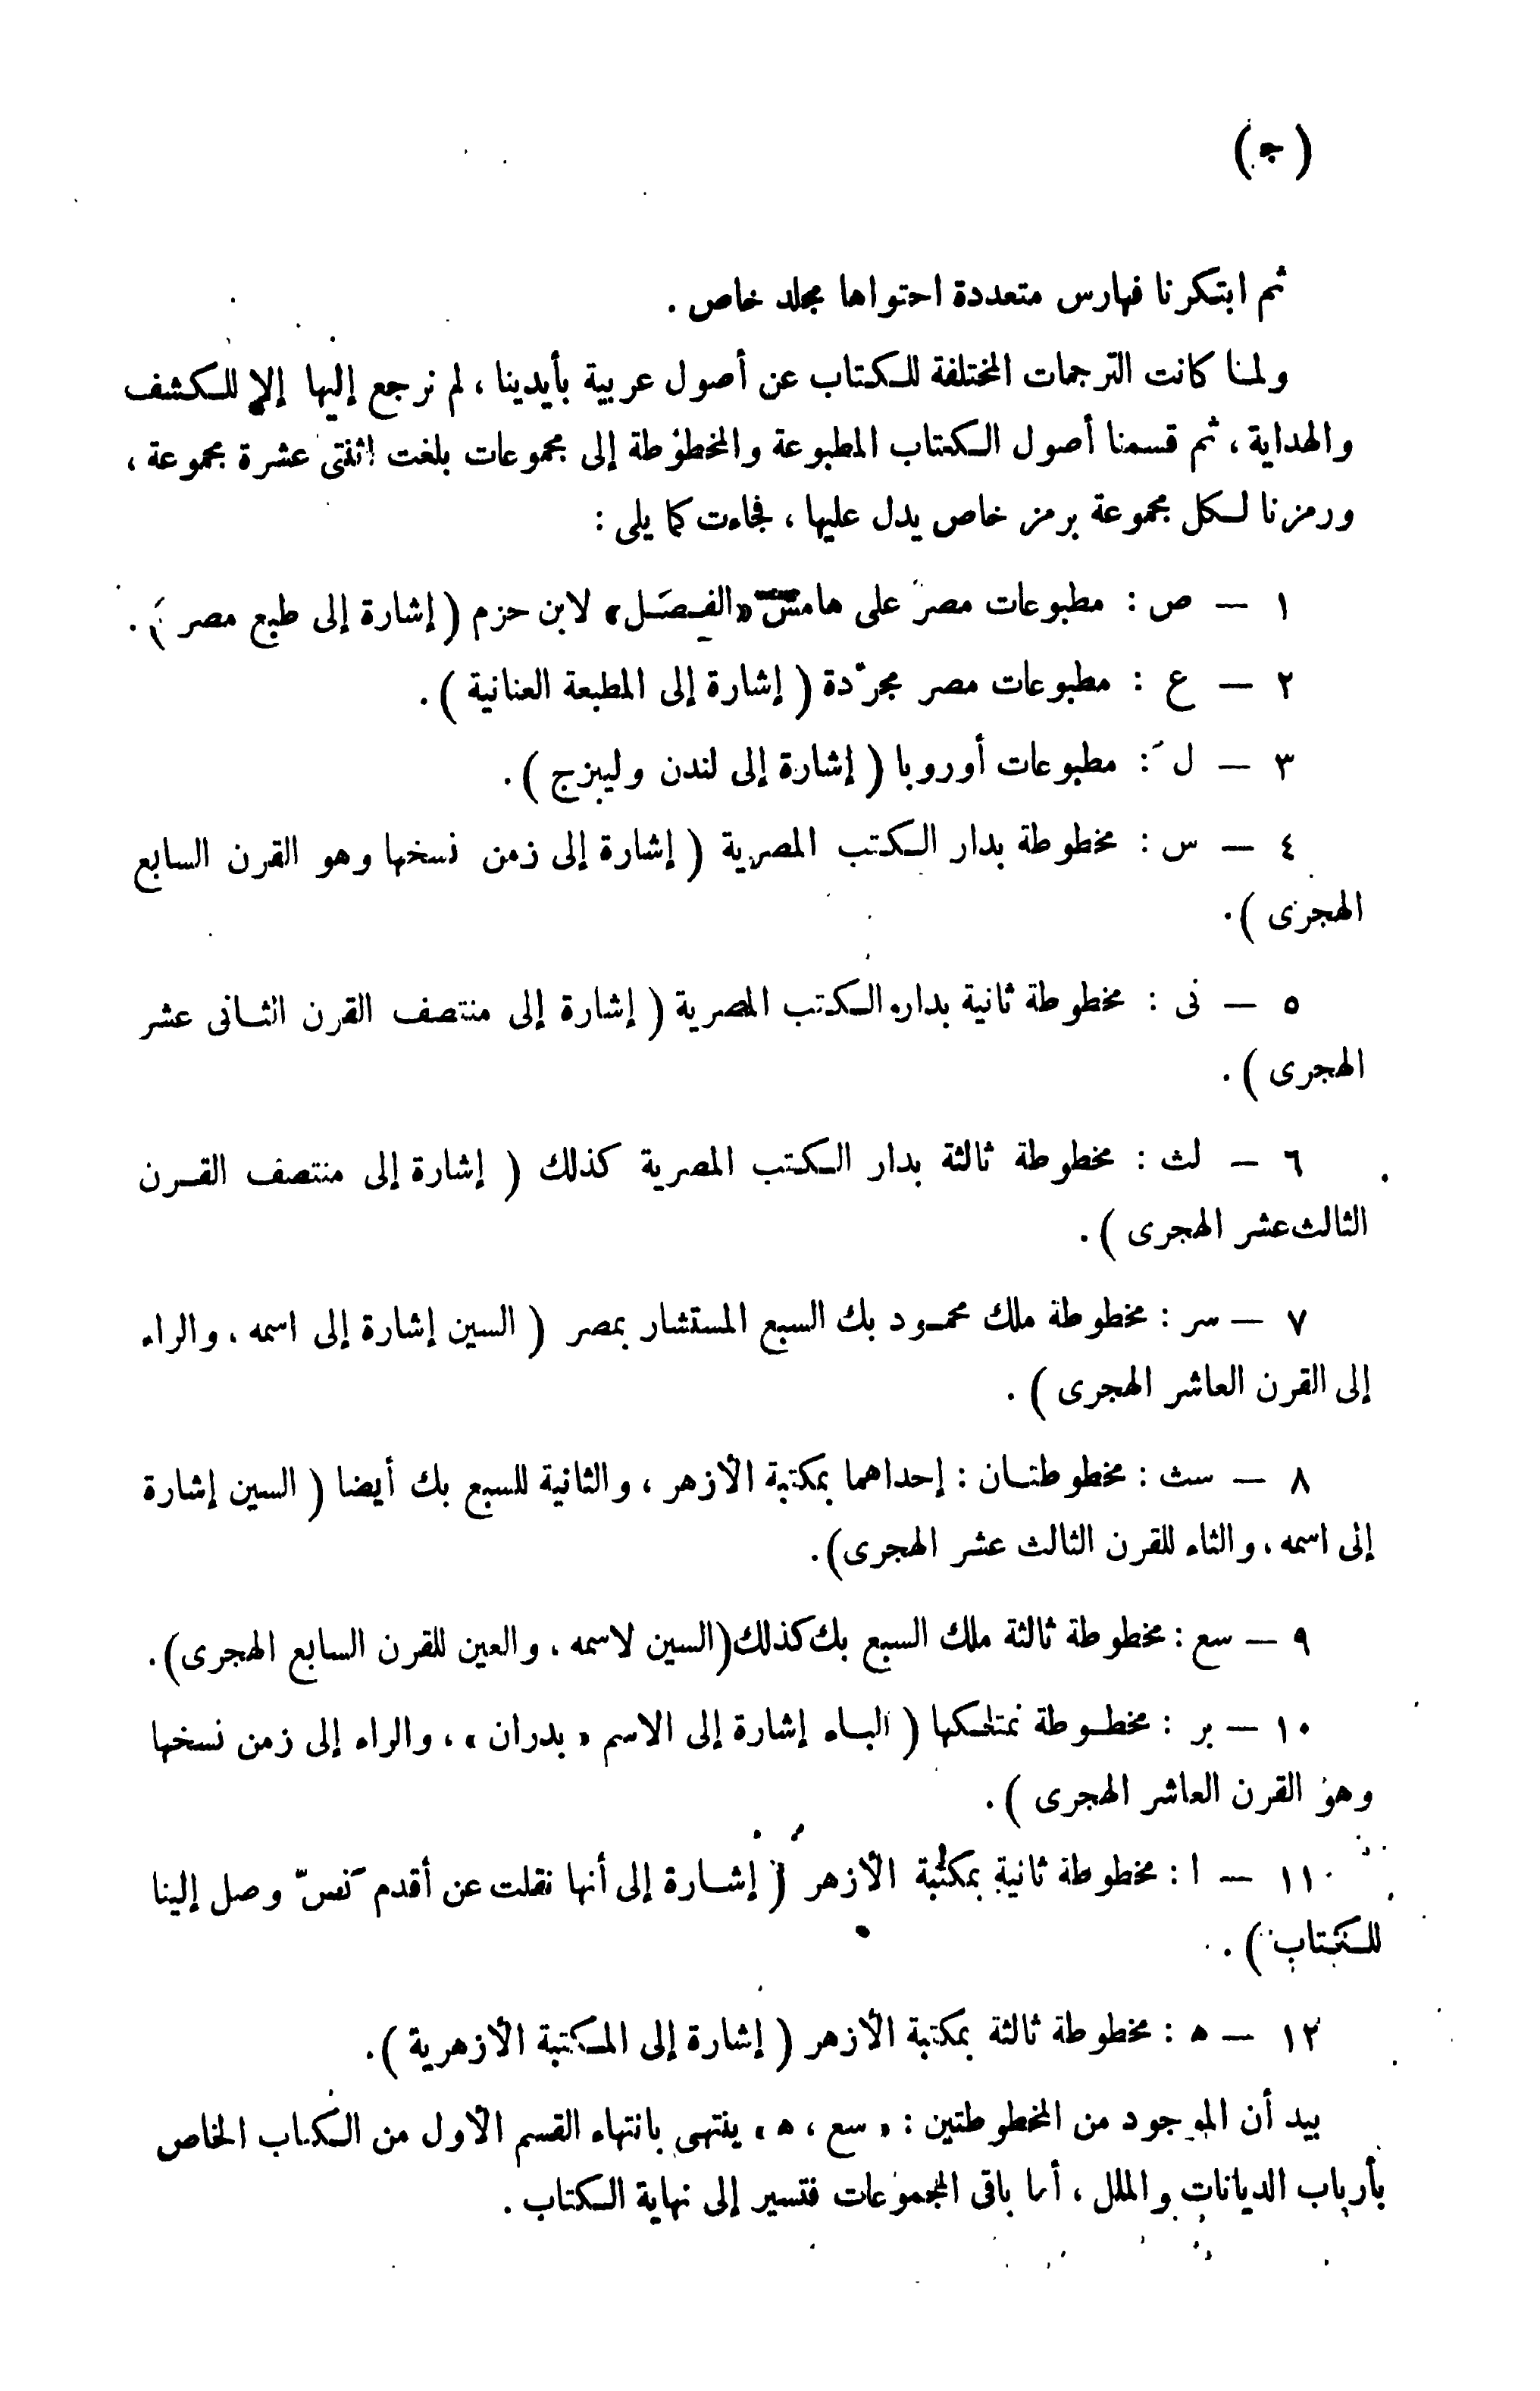 ( ج )
ثم ابتكرنا فهارس متعددة احتواها مجلد خاص .
ولمنا كانت الترجمات المختلفة للكتاب عن أصول عربية بأيدينا ، لم نرجع إليها إلا للكشف
والهداية ، ثم قسمنا أصول الكتاب المطبوعة والمخطوطة إلى مجموعات بلغت اثنتى عشرة مجموعة ،
ورمزنا لكل مجموعة برمز خاص يدل عليها ، فجاءت كما يلى :
١ — ص : مطبوعات مصر على هامش «الفِصَل» لابن حزم ( إشارة إلى طبع مصر ) .
٢ — ع : مطبوعات مصر مجرّدة ( إشارة إلى المطبعة العنانية ) .
٣ — ل : مطبوعات أوروبا ( إشارة إلى لندن وليبزج ) .
٤ — س : مخطوطة بدار الكتب المصرية ( إشارة إلى زمن نسخها وهو القرن السابع
الهجرى ) .
٥ — نى : مخطوطة ثانية بدار الكتب المصرية ( إشارة إلى منتصف القرن الثانى عشر
الهجرى ) .
٦ — لث : مخطوطة ثالثة بدار الكتب المصرية كذلك ( إشارة إلى منتصف القرن
الثالث عشر الهجرى ) .
٧ — سر : مخطوطة ملك محمود بك السبع المستشار بمصر ( السين إشارة إلى اسمه ، والراء
إلى القرن العاشر الهجرى ) .
٨ — سث : مخطوطتان : إحداهما بمكتبة الأزهر ، والثانية للسبع بك أيضا ( السين إشارة
إلى اسمه ، والثاء للقرن الثالث عشر الهجرى ) .
٩ — سع : مخطوطة ثالثة ملك السبع بك كذلك (السين لاسمه ، والعين للقرن السابع الهجرى) .
١٠ — بر : مخطوطة نمتلكها ( الباء إشارة إلى الاسم « بدران » ، والراء إلى زمن نسخها
وهو القرن العاشر الهجرى ) .
١١ — ا : مخطوطة ثانية بمكتبة الأزهر ( إشارة إلى أنها نقلت عن أقدم نصّ وصل إلينا
للكتاب ) .
١٢ — ه : مخطوطة ثالثة بمكتبة الأزهر ( إشارة إلى المكتبة الأزهرية ) .
بيد أن الموجود من المخطوطتين : « سع ، ه » ينتهى بانتهاء القسم الأول من الكتاب الخاص
بأرباب الديانات والملل ، أما باقى المجموعات فتسير إلى نهاية الكتاب .